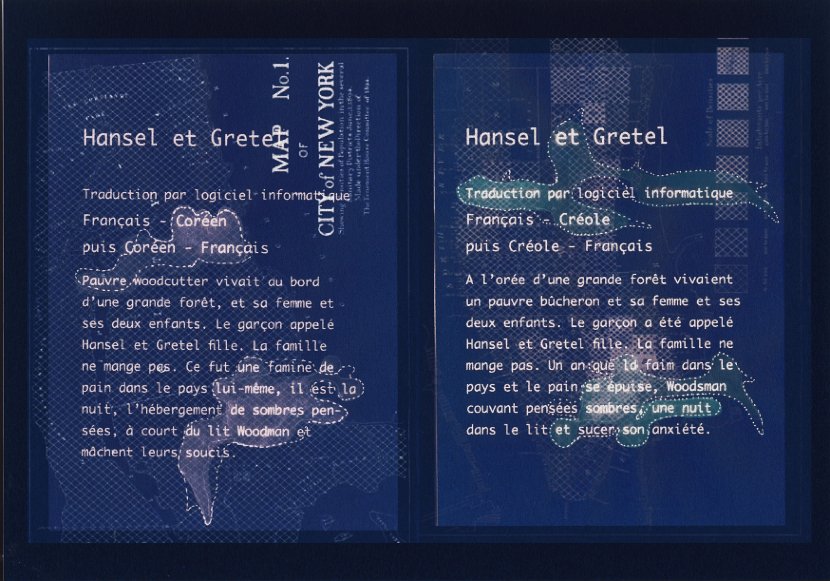 Hansel et Gretel
Traduction par logiciel informatique
Français - Coréen
puis Coréen - Français
Pauvre woodcutter vivait au bord
d'une grande forêt, et sa femme et
ses deux enfants. Le garçon appelé
Hansel et Gretel fille. La famille
ne mange pas. Ce fut une famine de
pain dans le pays lui-même, il est la
nuit, l'hébergement de sombres pen-
sées, à court du lit Woodman et
mâchent leurs soucis.
MAP No.1.
OF
CITY of NEW YORK
Hansel et Gretel
Traduction par logiciel informatique
Français - Créole
puis Créole - Français
A l'orée d'une grande forêt vivaient
un pauvre bûcheron et sa femme et ses
deux enfants. Le garçon a été appelé
Hansel et Gretel fille. La famille ne
mange pas. Un an que la faim dans le
pays et le pain se épuise, Woodsman
couvant pensées sombres, une nuit
dans le lit et sucer son anxiété.